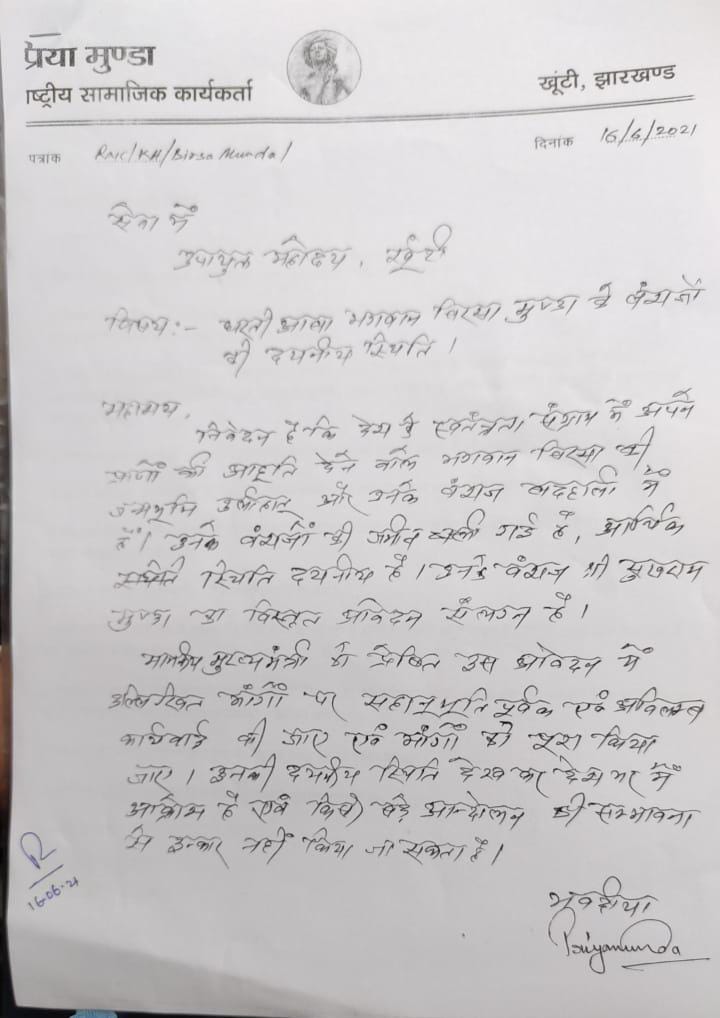 प्रिया मुण्डा
राष्ट्रीय सामाजिक कार्यकर्ता
खूंटी, झारखण्ड
पत्रांक
/KH/Birsa Munda/
दिनांक 16/6/2021
सेवा में
उपायुक्त महोदय, खूंटी
विषय:- धरती आबा भगवान बिरसा मुण्डा के वंशजों
की दयनीय स्थिति।
महाशय,
निवेदन है कि देश के स्वतंत्रता संग्राम में अपने
प्राणों की आहूति देने वाले भगवान बिरसा की
जन्मभूमि उलीहातू और उनके वंशज बदहाली में
हैं। उनके वंशजों की जमीन चली गई है, आर्थिक
स्थिति दयनीय है। उनके वंशज श्री सुखराम
मुण्डा का विस्तृत आवेदन संलग्न है।
माननीय मुख्यमंत्री को प्रेषित इस आवेदन में
उल्लिखित माँगों पर सहानुभूति पूर्वक एवं अविलम्ब
कार्यवाई की जाए एवं माँगों को पूरा किया
जाए। इनकी दयनीय स्थिति देख कर देश भर में
आक्रोश है एवं किसी बड़े आन्दोलन की सम्भावना
से इन्कार नहीं किया जा सकता है।
भवदीया
Priyamunda
R
16-06-21